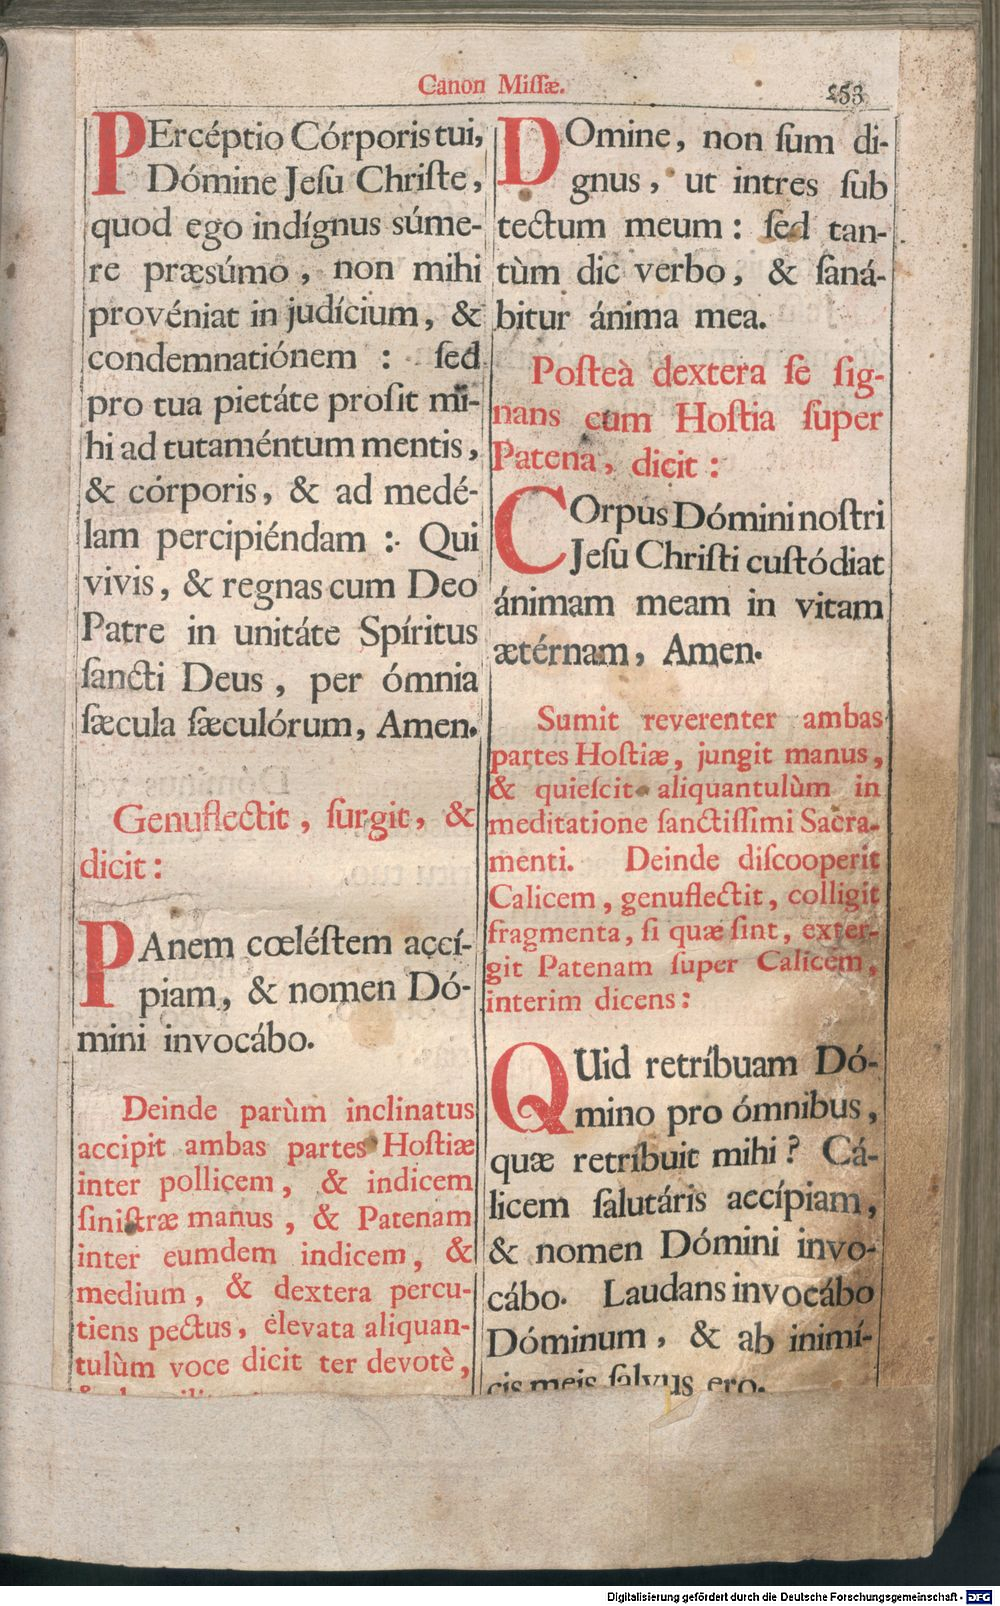 Canon Miſſæ.
253
PErcéptio Córporis tui,
Dómine Jeſu Chriſte,
quod ego indígnus súme-
re præsúmo, non mihi
provéniat in judícium, &
condemnatiónem : ſed
pro tua pietáte proſit mi-
hi ad tutaméntum mentis,
& córporis, & ad medé-
lam percipiéndam : Qui
vivis, & regnas cum Deo
Patre in unitáte Spíritus
ſancti Deus, per ómnia
ſæcula ſæculórum, Amen.
Genuflectit, ſurgit, &
dicit:
PAnem cœléſtem accí-
piam, & nomen Dó-
mini invocábo.
Deinde parùm inclinatus
accipit ambas partes Hoſtiæ
inter pollicem, & indicem
ſiniſtræ manus, & Patenam
inter eumdem indicem, &
medium, & dextera percu-
tiens pectus, elevata aliquan-
tulùm voce dicit ter devotè,
DOmine, non ſum di-
gnus, ut intres ſub
tectum meum : ſed tan-
tùm dic verbo, & ſaná-
bitur ánima mea.
Poſteà dextera ſe ſig-
nans cum Hoſtia ſuper
Patena, dicit :
COrpus Dómini noſtri
Jeſu Chriſti cuſtódiat
ánimam meam in vitam
ætérnam, Amen.
Sumit reverenter ambas
partes Hoſtiæ, jungit manus,
& quieſcit aliquantulùm in
meditatione ſanctiſſimi Sacra-
menti. Deinde diſcooperit
Calicem, genuflectit, colligit
fragmenta, ſi quæ ſint, exter-
git Patenam ſuper Calicem,
interim dicens:
QUid retríbuam Dó-
mino pro ómnibus,
quæ retríbuit mihi? Cá-
licem ſalutáris accípiam,
& nomen Dómini invo-
cábo. Laudans invocábo
Dóminum, & ab inimí-
cis meis ſalvus ero.
Digitalisierung gefördert durch die Deutsche Forschungsgemeinschaft - DFG